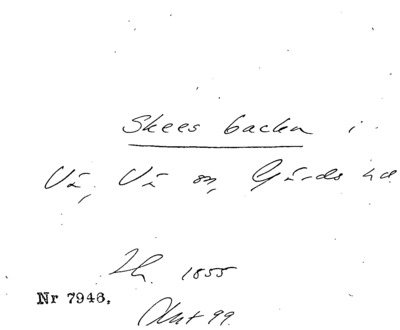 Skees backen i
Vä, Vä sn, Gärds hd
1855
Nr 7948.
99